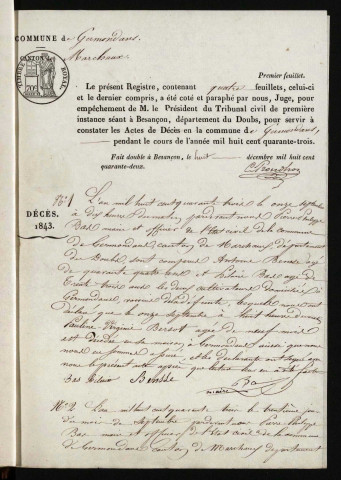 COMMUNE de Germondans
Marchaux
TIMBRE ROYAL
Premier feuillet.
Le présent Registre, contenant quatre feuillets, celui-ci
et le dernier compris, a été coté et paraphé par nous, Juge, pour
empêchement de M. le Président du Tribunal civil de première
instance séant à Besançon, département du Doubs, pour servir à
constater les Actes de Décès en la commune de Germondans,
pendant le cours de l'année mil huit cent quarante-trois.
Fait double à Besançon, le huit décembre mil huit cent
quarante-deux.
DÉCÈS.
1843.
N° 1 L'an mil huit cent quarante trois le onze septembre
à dix heures du matin, pardevant nous Pierre Philippe
Bas maire et officier de l'état civil de la commune
de Germondans, canton de Marchaux, département
du Doubs, sont comparus Antoine Bensse agé
de quarante quatre ans et Bas agé de
trente trois ans les deux cultivateurs domiciliés à
Germondans, lesquels nous ont
déclaré que le onze septembre à huit heures du
Pauline Virginie agé de neuf mois
est décédée en sa maison à Germondans ainsi que nous
nous en sommes assuré, et les déclarants ont signé avec
nous le présent acte après que lecture leur en a été faite
Bas Bensse
maire
N° 2 L'an mil huit cent quarante trois le trentième jour
du mois de Septembre pardevant nous Pierre Philippe
Bas maire et officier de l'état civil de la commune
de Germondans canton de Marchaux département